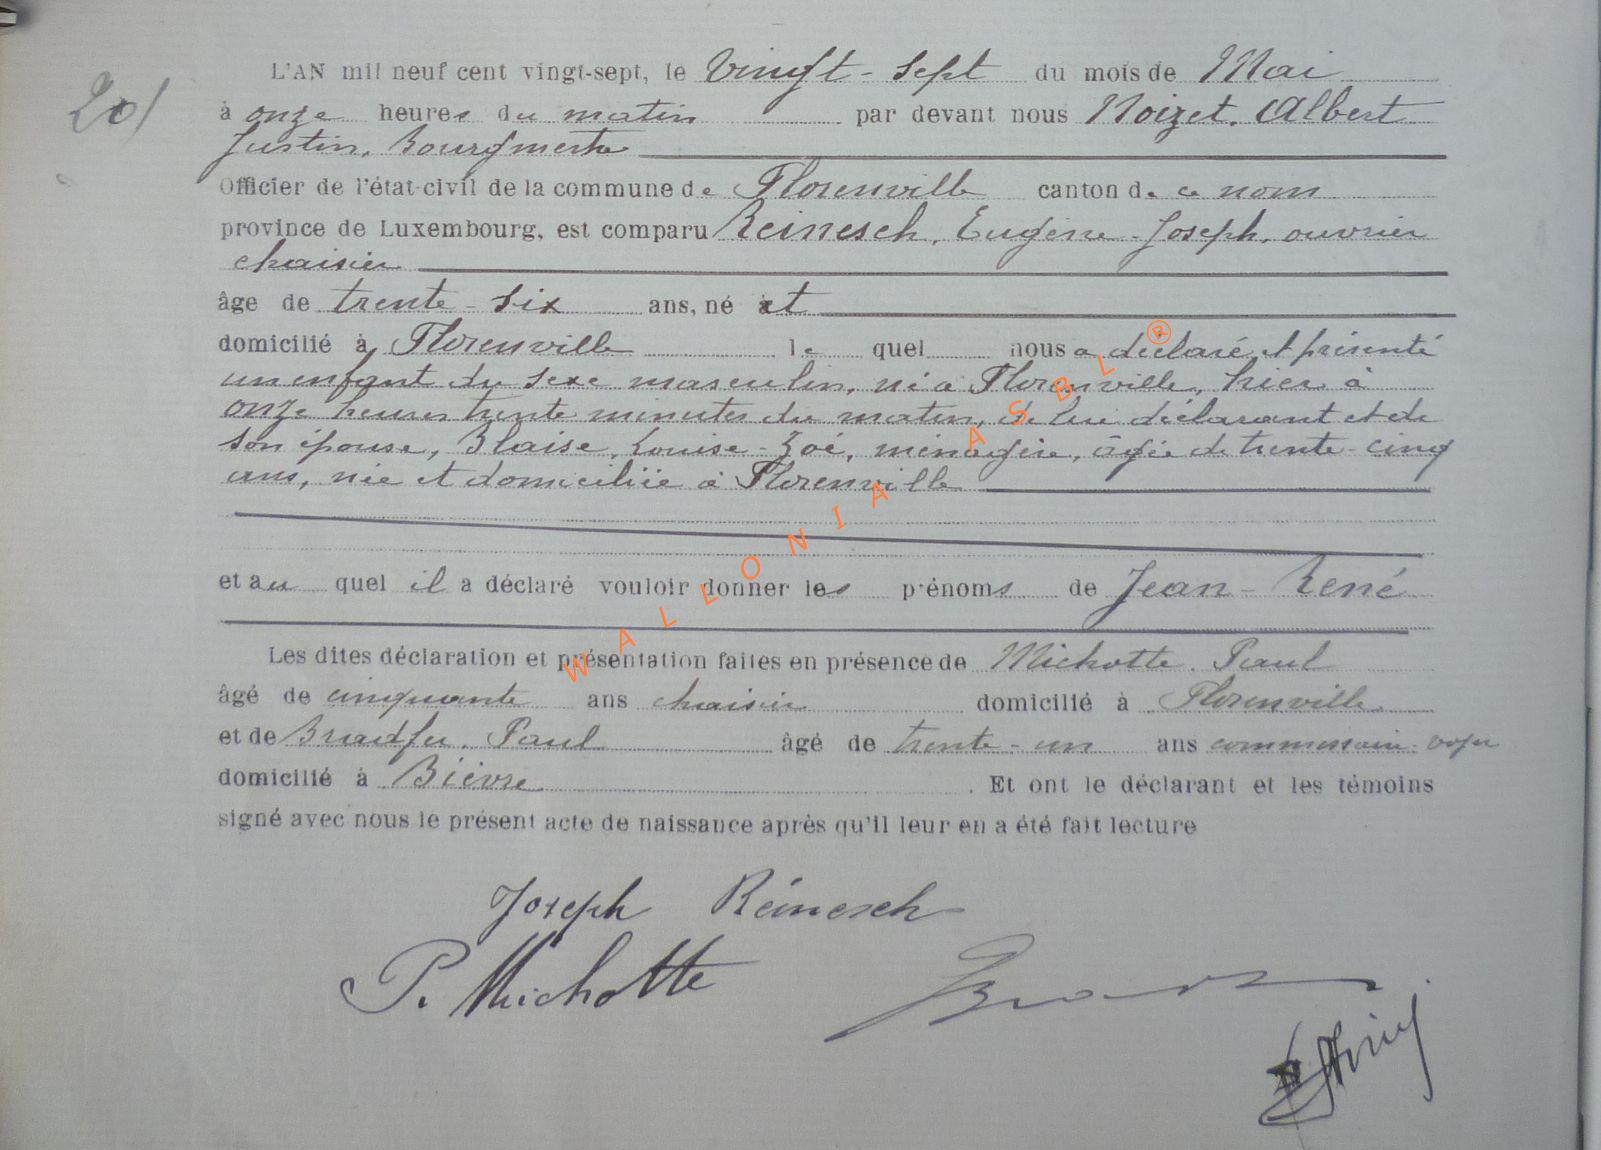 20/
L'AN mil neuf cent vingt-sept, le Vingt-sept du mois de Mai
à onze heures du matin par devant nous Noizet, Albert
Justin, Bourgmestre
Officier de l'état-civil de la commune de Florenville canton de ce nom
province de Luxembourg, est comparu Reinesch, Eugène-Joseph, ouvrier
chaisier
âge de trente-six ans, né et
domicilié à Florenville le quel nous a déclaré et présenté
un enfant du sexe masculin, né à Florenville, hier à
onze heures trente minutes du matin, de lui déclarant et de
son épouse, Blaise, Louise-Zoé, ménagère, âgée de trente-cinq
ans, née et domiciliée à Florenville
et au quel il a déclaré vouloir donner les prénoms de Jean-René
Les dites déclaration et présentation faites en présence de Michotte, Paul
âgé de cinquante ans chaisier domicilié à Florenville
et de Paul âgé de trente-un ans commissaire-voyer
domicilié à Bièvre. Et ont le déclarant et les témoins
signé avec nous le présent acte de naissance après qu'il leur en a été fait lecture
Joseph Réinesch
P. Michotte
WALLONIA ASBL ®